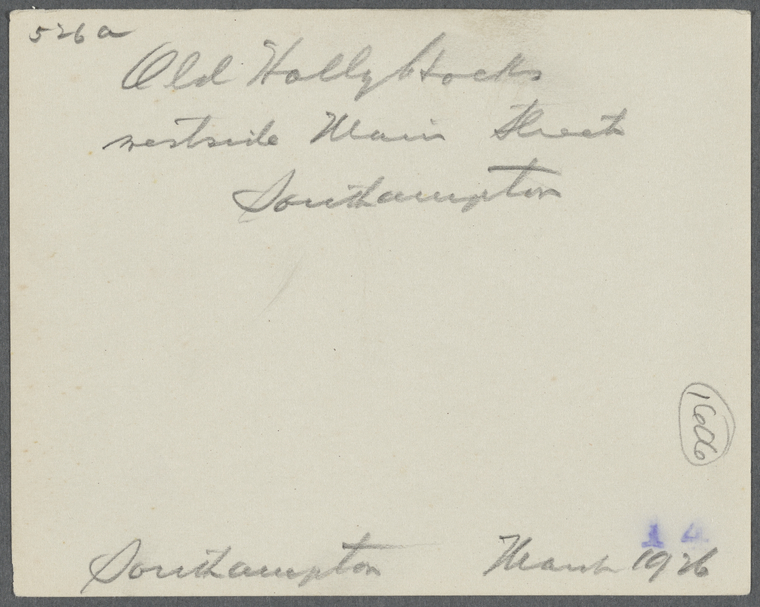 526a
Old Hollyhocks
westside Main Street
Southampton
1606
14
Southampton March 1926